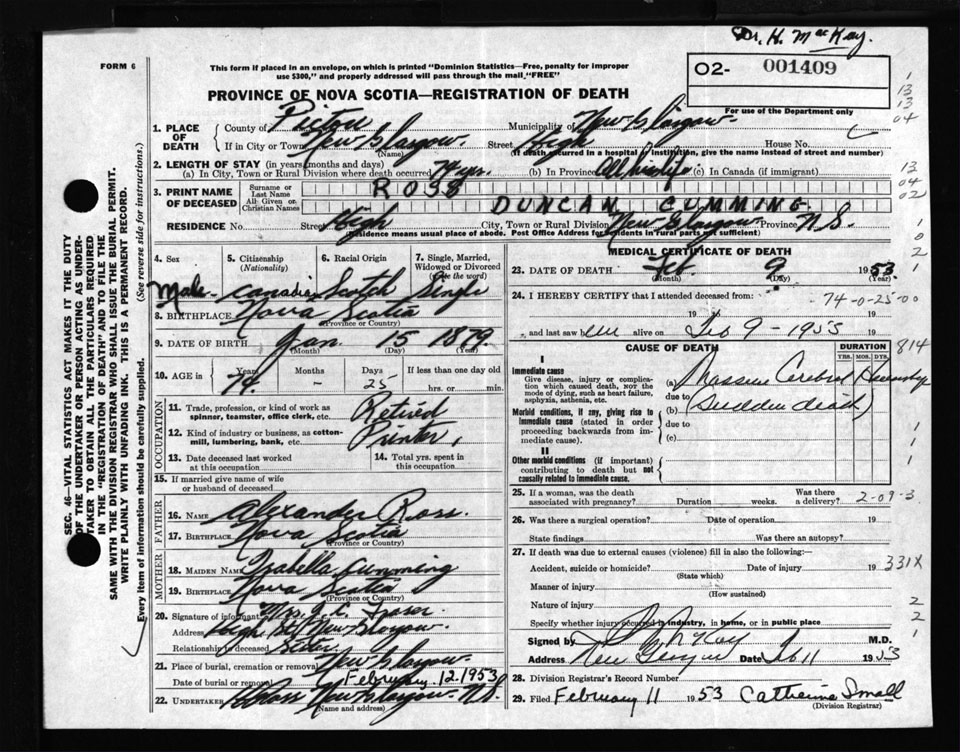 Dr. H. MacKay.
FORM 6
This form if placed in an envelope, on which is printed "Dominion Statistics—Free, penalty for improper
use $300," and properly addressed will pass through the mail "FREE"
O2- 001409
For use of the Department only
PROVINCE OF NOVA SCOTIA—REGISTRATION OF DEATH
1. PLACE OF DEATH
County of Pictou Municipality of New Glasgow
If in City or Town New Glasgow. Street High House No.
(Name) (If death occurred in a hospital or institution, give the name instead of street and number)
2. LENGTH OF STAY (in years months and days)
(a) In City, Town or Rural Division where death occurred 74 yrs. (b) In Province All his life (c) In Canada (if immigrant)
3. PRINT NAME OF DECEASED
Surname or Last Name ROSS
All Given or Christian Names DUNCAN CUMMING
RESIDENCE No. Street High City, Town or Rural Division New Glasgow Province N.S.
(Residence means usual place of abode. Post Office Address for residents in rural parts not sufficient)
4. Sex
5. Citizenship (Nationality)
6. Racial Origin
7. Single, Married, Widowed or Divorced (Write the word)
Male Canadian Scotch Single
8. BIRTHPLACE Nova Scotia
(Province or Country)
9. DATE OF BIRTH Jan. 15 1879
(Month) (Day) (Year)
10. AGE in Years Months Days If less than one day old
74 - 25 hrs. or min.
OCCUPATION
11. Trade, profession, or kind of work as spinner, teamster, office clerk, etc. Retired
12. Kind of industry or business, as cotton-mill, lumbering, bank, etc. Printer,
13. Date deceased last worked at this occupation
14. Total yrs. spent in this occupation
15. If married give name of wife or husband of deceased
FATHER
16. NAME Alexander Ross.
17. BIRTHPLACE Nova Scotia
(Province or Country)
MOTHER
18. MAIDEN NAME Isabella Cumming
19. BIRTHPLACE Nova Scotia
(Province or Country)
20. Signature of informant Mrs. Fraser
Address High St New Glasgow.
Relationship to deceased Sister
21. Place of burial, cremation or removal New Glasgow
Date of burial or removal February 12, 1953
22. UNDERTAKER Ross New Glasgow N.S.
(Name and address)
MEDICAL CERTIFICATE OF DEATH
23. DATE OF DEATH Feb. 9 1953
(Month) (Day) (Year)
24. I HEREBY CERTIFY that I attended deceased from:
74-0-25-00
19 19
and last saw him alive on Feb 9 - 1953 19
CAUSE OF DEATH
DURATION
YRS. MOS. DYS.
814
I
Immediate cause
Give disease, injury or complication which caused death, not the mode of dying, such as heart failure, asphyxia, asthenia, etc.
(a) Massive Cerebral Hemorrhage
due to
Morbid conditions, if any, giving rise to immediate cause (stated in order proceeding backwards from immediate cause).
(b) (sudden death)
due to
(c)
II
Other morbid conditions (if important) contributing to death but not causally related to immediate cause.
25. If a woman, was the death associated with pregnancy? Duration weeks. Was there a delivery? 2-09-3
26. Was there a surgical operation? Date of operation 19
State findings Was there an autopsy?
27. If death was due to external causes (violence) fill in also the following:—
Accident, suicide or homicide? Date of injury 19 331X
(State which)
Manner of injury
(How sustained)
Nature of injury
Specify whether injury occurred in industry, in home, or in public place
Signed by McKay M.D.
Address New Glasgow Date Feb 11 1953
28. Division Registrar's Record Number
29. Filed February 11 1953 Catherine Small
(Division Registrar)
SEC. 46—VITAL STATISTICS ACT MAKES IT THE DUTY
OF THE UNDERTAKER OR PERSON ACTING AS UNDER-
TAKER TO OBTAIN ALL THE PARTICULARS REQUIRED
IN THE "REGISTRATION OF DEATH" AND TO FILE THE
SAME WITH THE DIVISION REGISTRAR WHO SHALL ISSUE THE BURIAL PERMIT.
WRITE PLAINLY WITH UNFADING INK. THIS IS A PERMANENT RECORD.
Every item of information should be carefully supplied. (See reverse side for instructions.)
1
13
13
04
13
04
02
1
0
2
1
1
1
2
2
1